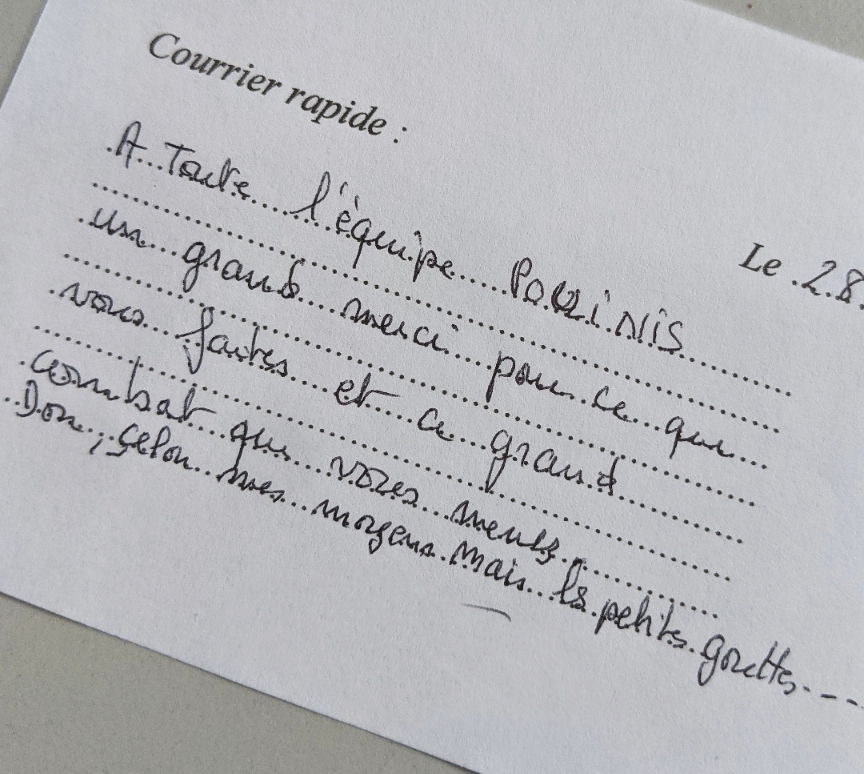 Courrier rapide :
Le 28
A Toute l'équipe POLLINIS
un grand merci pour ce que
vous faites et ce grand
combat que vous menez
Don, selon mes moyens mais ls petits gouttes ----